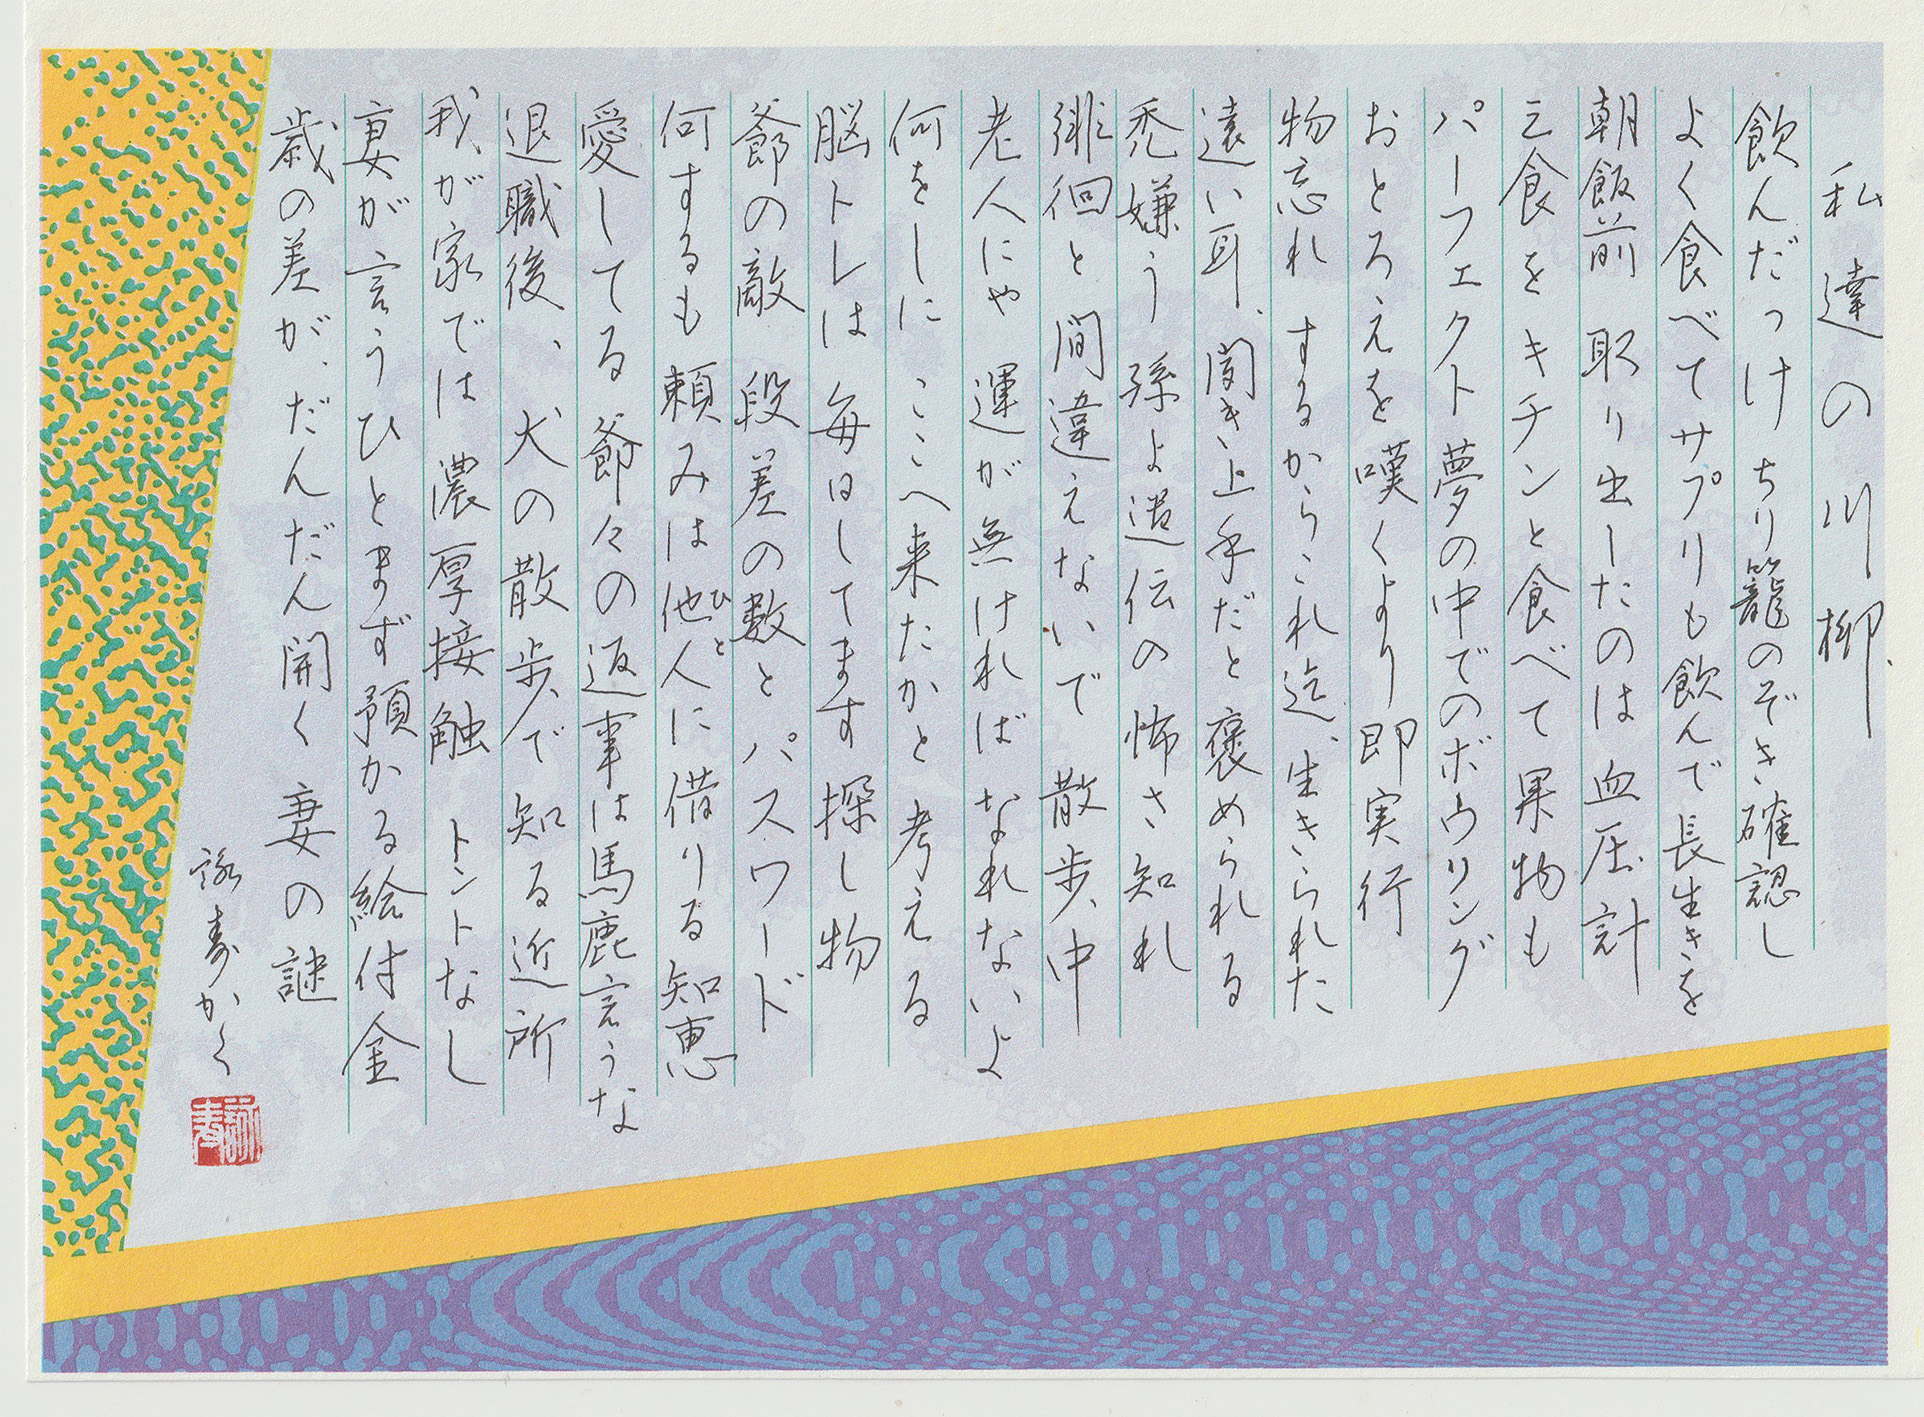 私達の川柳
飲んだっけ ちり籠のぞき確認し
よく食べてサプリも飲んで長生きを
朝飯前 取り出したのは血圧計
三食をキチンと食べて果物も
パーフェクト夢の中でのボウリング
おとろえを嘆くより即実行
物忘れ するからこれ迄生きられた
遠い耳、聞き上手だと褒められる
禿嫌う 孫よ遺伝の怖さ知れ
徘徊と間違えないで 散歩中
老人にや 運が無ければなれないよ
何をしに ここへ来たかと考える
脳トレは 毎日してます探し物
爺の敵 段差の数とパスワード
何するも頼みは他人に借りる知恵
ひと
愛してる 爺々の返事は馬鹿言うな
退職後、犬の散歩で知る近所
我が家では濃厚接触 トントなし
妻が言うひとまず預かる給付金
歳の差が、だんだん開く妻の謎
詠寿かく